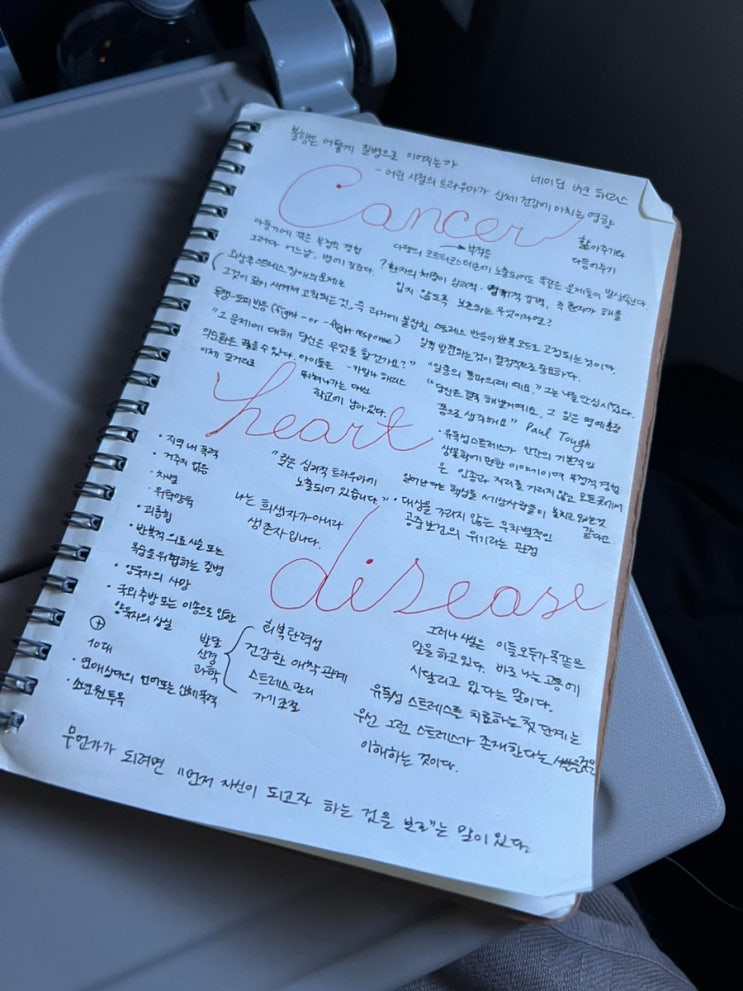 불행은 어떻게 질병으로 이어지는가
네이딘 버크 해리스
- 어린 시절의 트라우마가 신체 건강에 미치는 영향
Cancer
핥아주기와
다듬어주기
아동기에 겪은 부정적 경험
그러다 어느날, 병이 들었다.
부적응
다량의 코르티코스테론에 노출되어도 똑같은 문제들이 발생했다.
? 환자의 처한 심리적·
압력, 즉 환자가 해를
입지 않도록 보호하는 무엇이라면?
외상후 스트레스 장애의 문제는
그것이 깊이 새겨져 고착되는 것, 즉 과거에 붙잡힌 스트레스 반응이 반복 모드로 고정되는 것이다.
투쟁-도피 반응 (fight - or - flight response)
일찍 발견되는 것이 결정적으로 중요하다.
"그 문제에 대해 당신은 무엇을 할건가요?"
악순환은 끊을 수 있다. 아이들은
- 카밀라 해리스
이제 길거리로
뛰쳐나가는 대신
학교에 남아있다.
"일종의 통과의례예요." 그는 나를 안심시켰다.
"당신은 결국 해낼거예요. 그 일은 명예훈장
쯤으로 생각해요" Paul Tough
heart
· 유독성 스트레스가 인간의 기본적인
생물학에 관한 이야기이며 부정적 경험
은 인종과 지리를 가리지 않고 모든 곳에서
일어난다는 핵심을 시키 사람들이 놓치고 있는 것
같다고
· 지역 내 폭력
· 거주지 없음
· 차별
· 위탁양육
· 괴롭힘
· 반복적 의료 시술 또는
목숨을 위협하는 질병
· 양육자의 사망
· 국외 추방 또는 이송으로 인한
양육자의 상실
"많은 심리적 트라우마에
노출되어 있습니다."
나는 희생자가 아니라
생존자입니다.
· 대상을 가리지 않는 무차별적인
공중보건의 위기라는 관점
disease
+
10대
· 연애 상대의 언어 또는 신체폭력
· 소년원 투옥
발달
신경
과학
회복탄력성
건강한 애착 관계
스트레스 관리
자기 조절
그러나 사실은 이들 모두가 똑같은
말을 하고 있다. 바로 나는 고통에
시달리고 있다는 말이다.
유독성 스트레스를 치료하는 첫 단계는
우선 그런 스트레스가 존재한다는
이해하는 것이다.
무언가가 되려면 "먼저 자신이 되고자 하는 것을 보라"는 말이 있다.